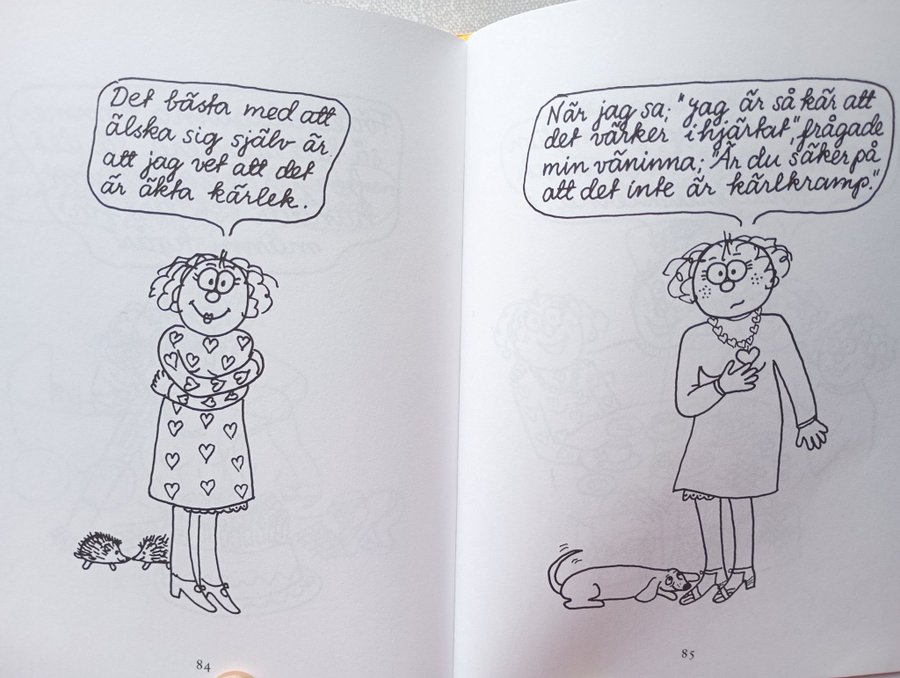 Det bästa med att
älska sig själv är
att jag vet att det
är äkta kärlek.
84
När jag sa; "Jag är så kär att
det värker i hjärtat," frågade
min väninna; "Är du säker på
att det inte är kärlkramp."
85